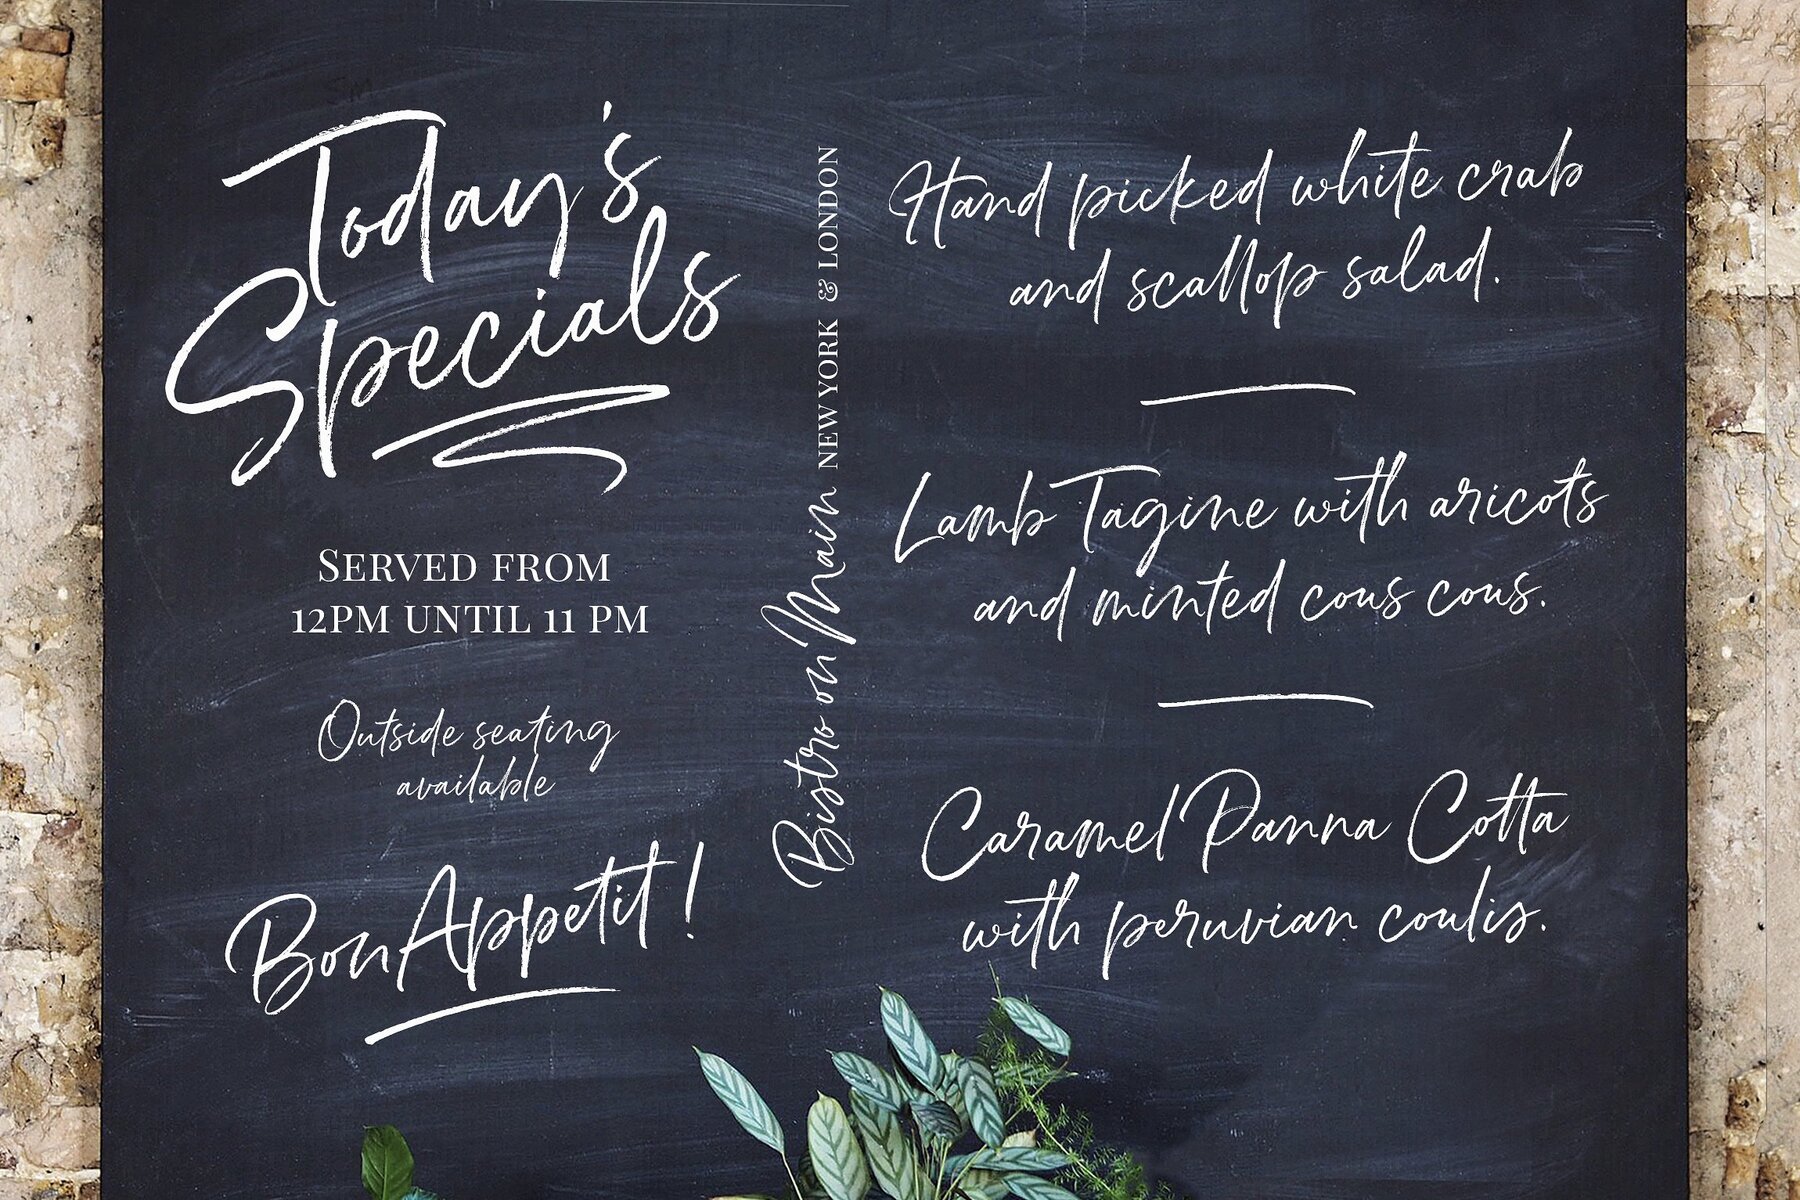 Today's
Specials
SERVED FROM
12PM UNTIL 11 PM
Outside seating
available
Bon Appetit !
Bistro on Main NEW YORK & LONDON
Hand picked white crab
and scallop salad.
Lamb Tagine with aricots
and minted cous cous.
Caramel Panna Cotta
with peruvian coulis.